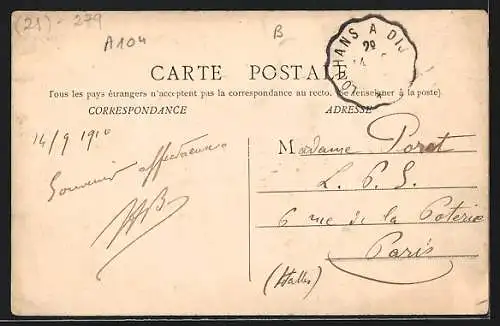 (21) - 279
A104
B
LOUHANS A DIJ
29
14
CARTE POSTALE
Tous les pays étrangers n'acceptent pas la correspondance au recto. (Se renseigner à la poste).
CORRESPONDANCE
ADRESSE
14/9 1910
Souvenir affectueux
Madame Poret
L. P. S.
6 rue de la Poterie
Paris
(Halles)